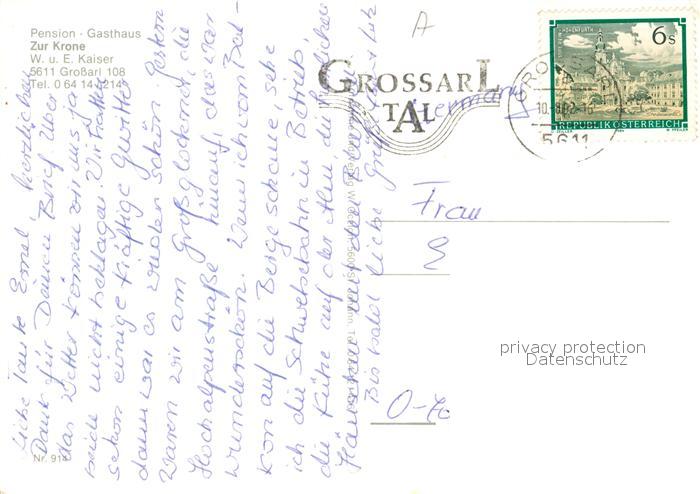 Pension · Gasthaus
Zur Krone
W. u. E. Kaiser
5611 Großarl 108
Tel. 0 64 14-214
Liebe Tante Emel, herzlichen
Dank für Deinen Brief. Über
das Wetter können wir uns ja
beide nicht beklagen. Wir hatten
schon einige kräftige Gewitter
dann war es wieder schön. Gestern
waren wir am Großglockner, die
Hochalpenstraße hinauf, das war
wunderschön. Wenn ich vom Bal-
kon auf die Berge schaue, sehe
ich die Schwebebahn in Betrieb,
die Kühe auf der Alm, die
Bis bald liebe Grüße
GROSSARL
TAL
5611
STIFT HOHENFURTH
6s
REPUBLIK ÖSTERREICH
Frau
privacy protection
Datenschutz
Nr. 914